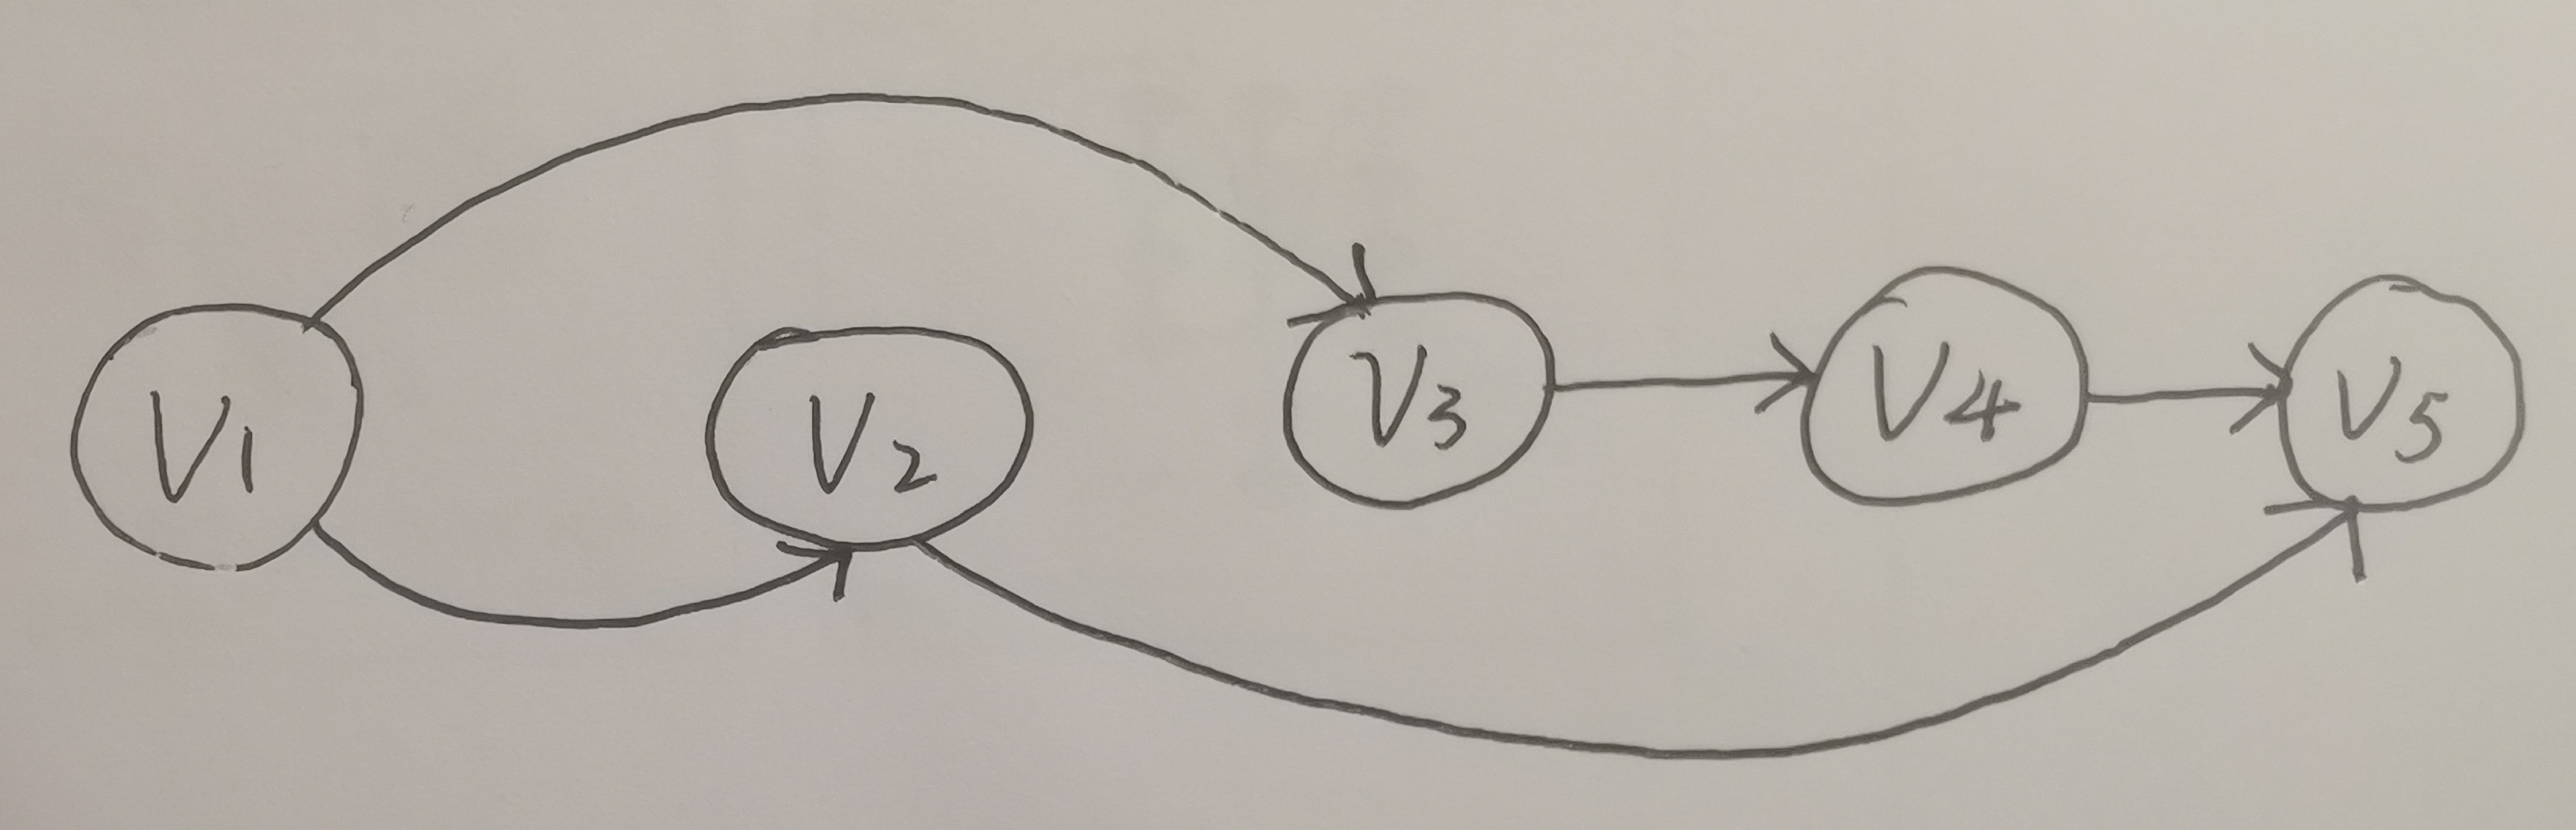 V1
V2
V3
V4
V5